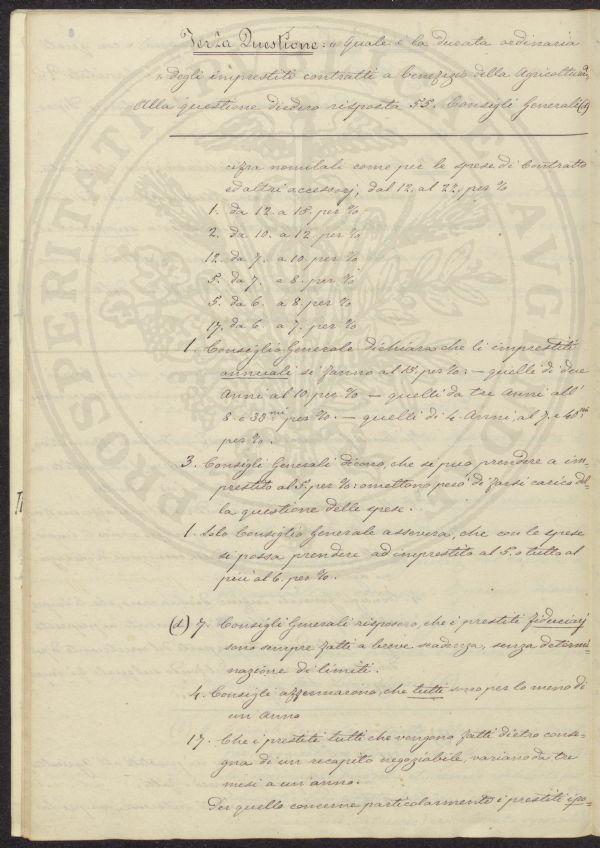 Terza Questione: « Quale è la durata ordinaria
» degli imprestiti contratti a benefizio della Agricoltura,
Alla questione diedero risposta 55. Consigli Generali (d)
cifra nominali come per le spese di Contratto
ed altri accessorj, dal 12. al 22. per %
1. da 12. a 15. per %
2. da 10. a 12. per %
12. da 7. a 10. per %
5. da 7. a 8. per %
5. da 6. a 8. per %
17. da 6. a 7. per %
1. Consiglio Generale dichiara che li imprestiti
annuali si fanno al 15. per %: – quelli di due
Anni al 10. per % – quelli da tre Anni all'
8. e 33 mi per %. – quelli di 4. Anni, al 7. e
per %.
3. Consigli Generali dicono, che si può prendere a im-
prestito al 5. per %: omettono però di farsi carico del-
la questione delle spese.
1. Solo Consiglio Generale assevera, che con le spese
si possa prendere ad imprestito al 5. o tutto al
più al 6. per %.
(d) 7. Consigli Generali risposero, che i prestiti fiduciarj
sono sempre fatti a breve scadenza, senza determi-
nazione di limiti.
4. Consigli affermarono, che tutti sono per lo meno di
un anno
17. Che i prestiti tutti che vengono fatti dietro conse-
gna di un recapito negoziabile, variano da tre
mesi a un anno.
Per quello concerne particolarmente i prestiti ipo-